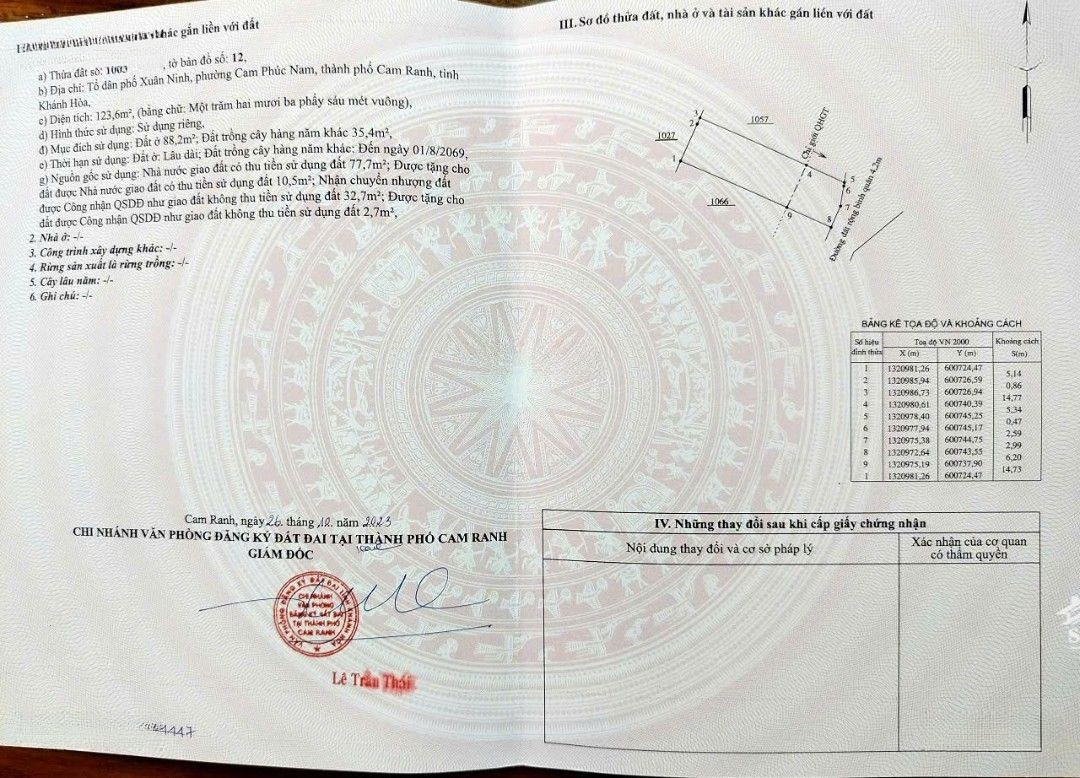 khác gắn liền với đất
a) Thửa đất số: 1003 , tờ bản đồ số: 12,
b) Địa chỉ: Tổ dân phố Xuân Ninh, phường Cam Phúc Nam, thành phố Cam Ranh, tỉnh
Khánh Hòa,
c) Diện tích: 123,6m², (bằng chữ: Một trăm hai mươi ba phẩy sáu mét vuông),
d) Hình thức sử dụng: Sử dụng riêng,
đ) Mục đích sử dụng: Đất ở 88,2m²; Đất trồng cây hàng năm khác 35,4m²,
e) Thời hạn sử dụng: Đất ở: Lâu dài; Đất trồng cây hàng năm khác: Đến ngày 01/8/2069,
g) Nguồn gốc sử dụng: Nhà nước giao đất có thu tiền sử dụng đất 77,7m²; Được tặng cho
đất được Nhà nước giao đất có thu tiền sử dụng đất 10,5m²; Nhận chuyển nhượng đất
được Công nhận QSDĐ như giao đất không thu tiền sử dụng đất 32,7m²; Được tặng cho
đất được Công nhận QSDĐ như giao đất không thu tiền sử dụng đất 2,7m²,
2. Nhà ở: -/-
3. Công trình xây dựng khác: -/-
4. Rừng sản xuất là rừng trồng: -/-
5. Cây lâu năm: -/-
6. Ghi chú: -/-
Cam Ranh, ngày 26 tháng 10 năm 2023
CHI NHÁNH VĂN PHÒNG ĐĂNG KÝ ĐẤT ĐAI TẠI THÀNH PHỐ CAM RANH
GIÁM ĐỐC
VĂN PHÒNG ĐĂNG KÝ ĐẤT ĐAI TỈNH KHÁNH HÒA
CHI NHÁNH
VĂN PHÒNG
ĐĂNG KÝ ĐẤT ĐAI
TẠI THÀNH PHỐ
CAM RANH
Lê Trần Thái
III. Sơ đồ thửa đất, nhà ở và tài sản khác gắn liền với đất
1027
1057
1066
Chỉ giới QHGT
Đường đất rộng bình quân 4,2m
1
2
3
4
5
6
7
8
9
BẢNG KÊ TỌA ĐỘ VÀ KHOẢNG CÁCH
Số hiệu đỉnh thửa Toạ độ VN 2000 Khoảng cách
X (m) Y (m) S(m)
1 1320981,26 600724,47
5,14
2 1320985,94 600726,59
0,86
3 1320986,73 600726,94
14,77
4 1320980,61 600740,39
5,34
5 1320978,40 600745,25
0,47
6 1320977,94 600745,17
2,59
7 1320975,38 600744,75
2,99
8 1320972,64 600743,55
6,20
9 1320975,19 600737,90
14,73
1 1320981,26 600724,47
IV. Những thay đổi sau khi cấp giấy chứng nhận
Nội dung thay đổi và cơ sở pháp lý
Xác nhận của cơ quan
có thẩm quyền